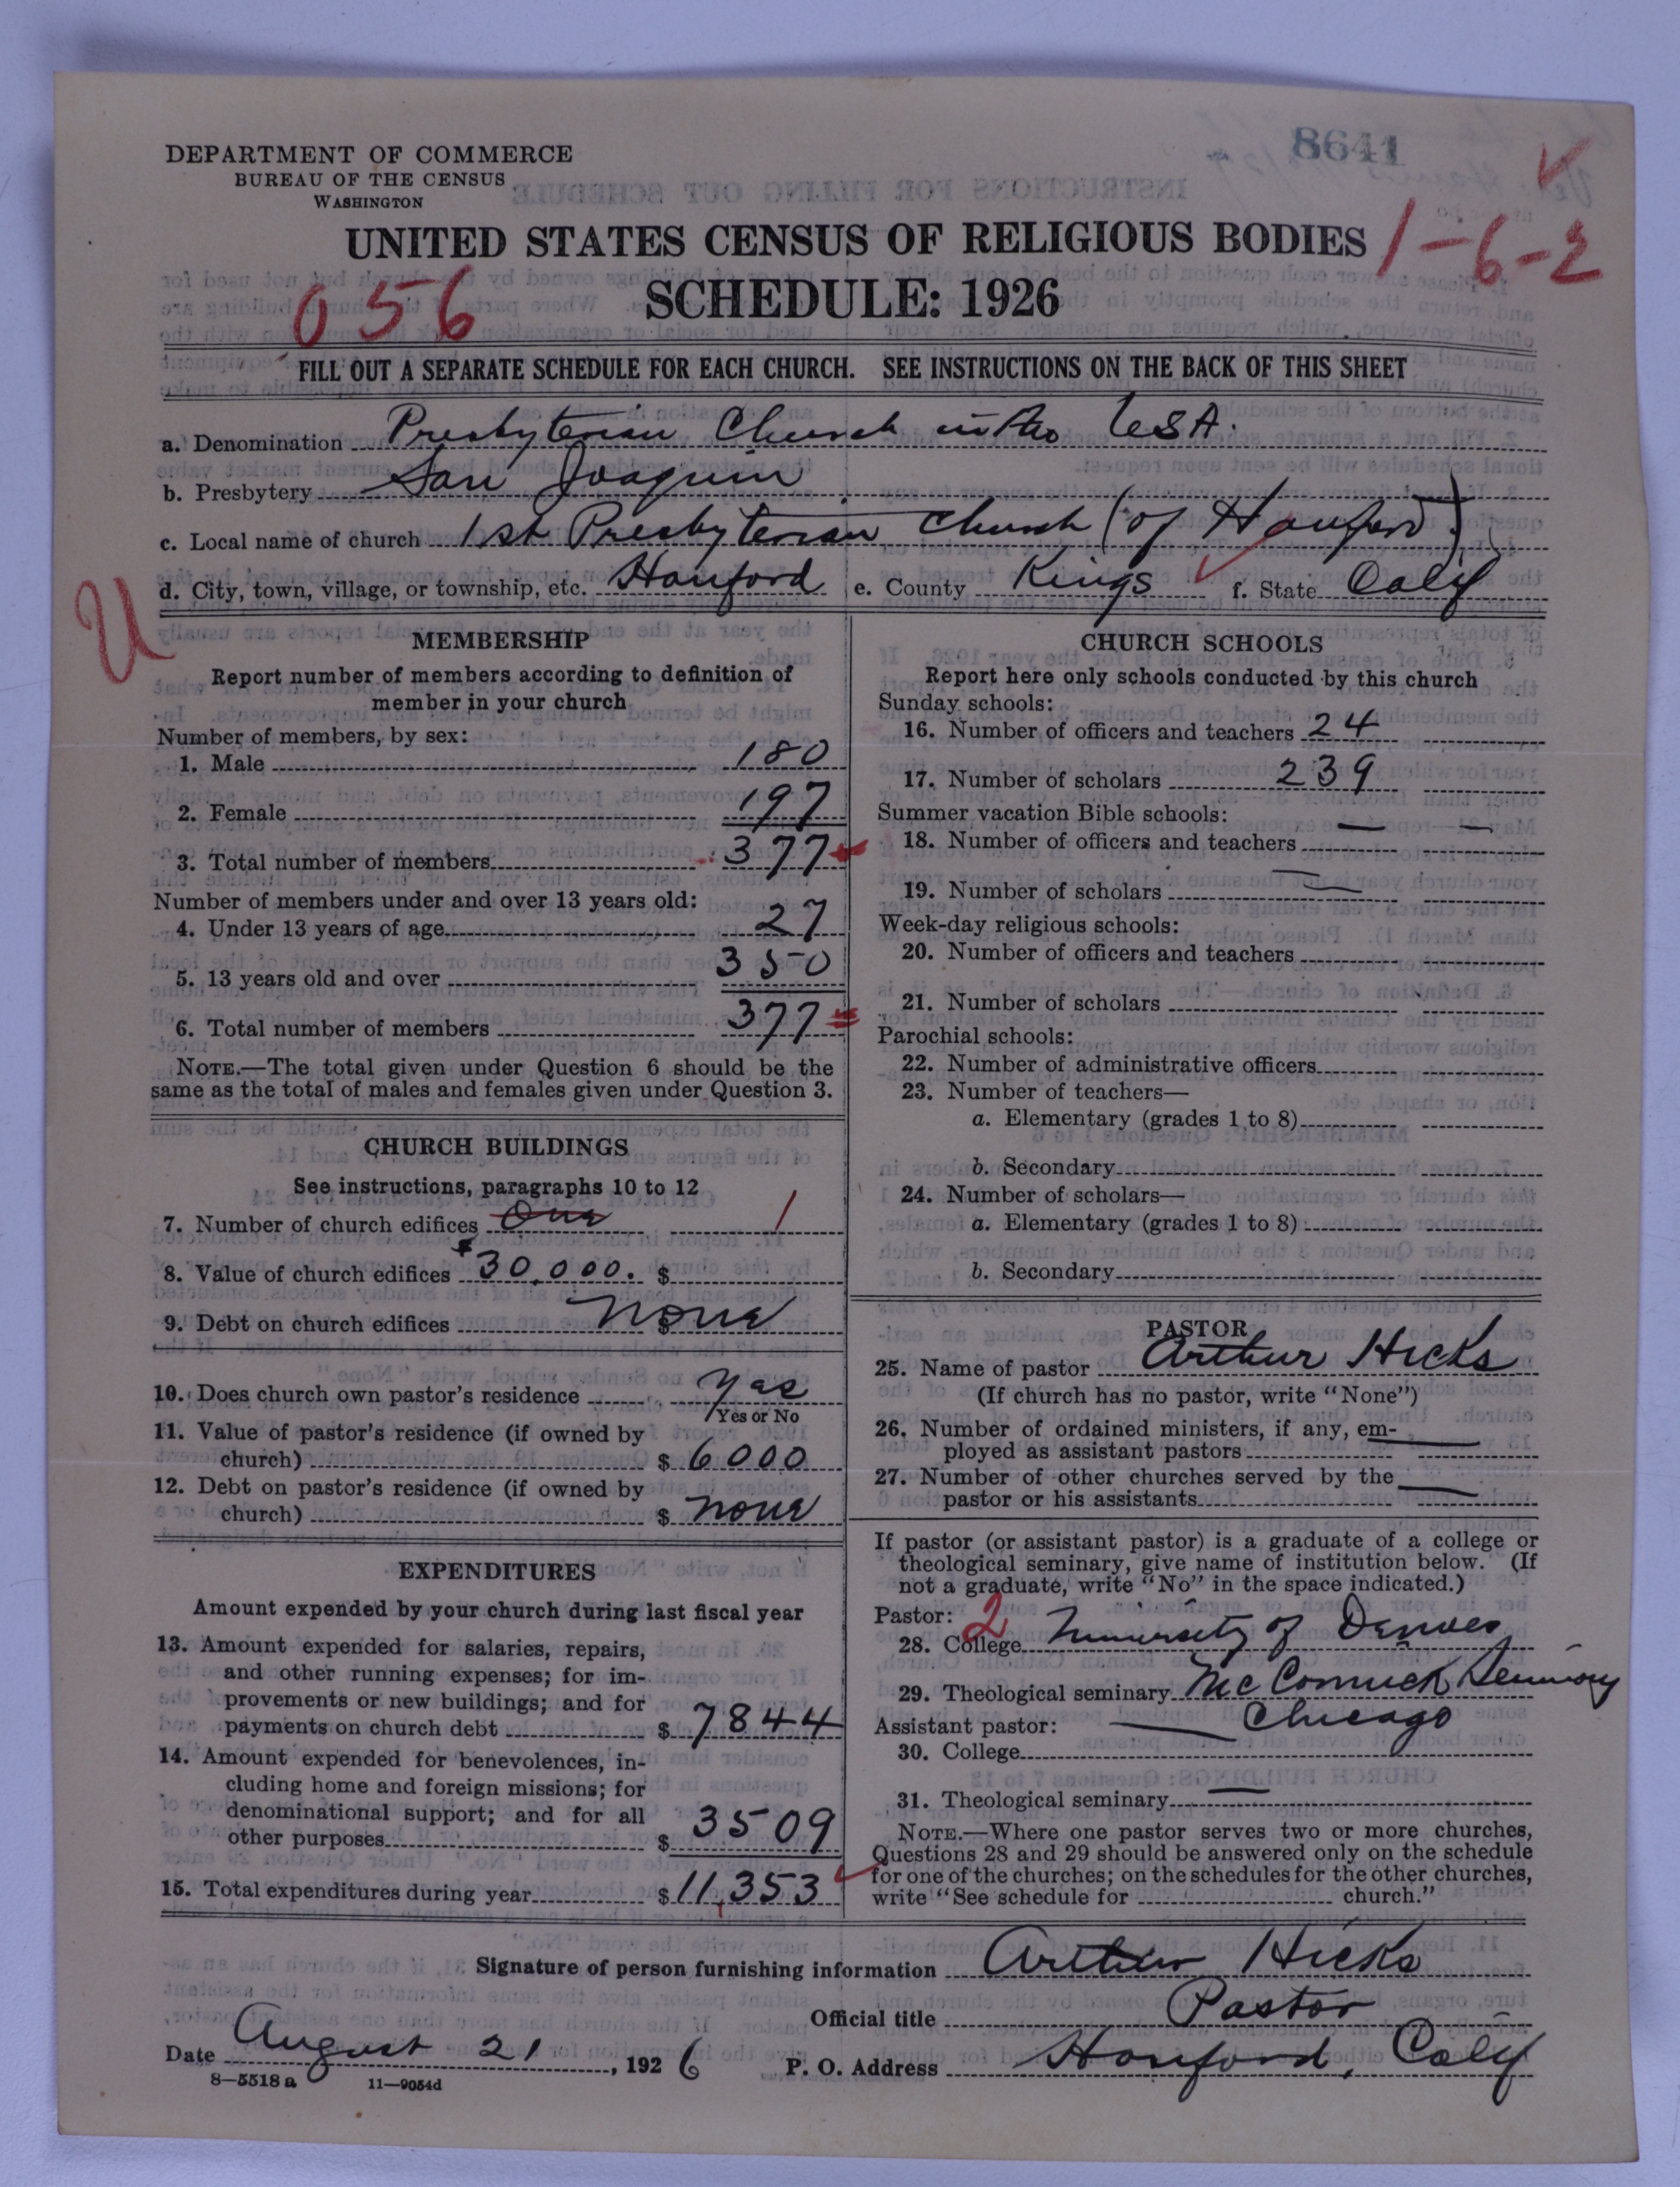 8641
DEPARTMENT OF COMMERCE
BUREAU OF THE CENSUS
WASHINGTON
UNITED STATES CENSUS OF RELIGIOUS BODIES 1-6-2
056 SCHEDULE: 1926
FILL OUT A SEPARATE SCHEDULE FOR EACH CHURCH. SEE INSTRUCTIONS ON THE BACK OF THIS SHEET
a. Denomination Presbyterian Church in the USA.
b. Presbytery San Joaquin
c. Local name of church 1st Presbyterian Church (of Hanford)
d. City, town, village, or township, etc. Hanford e. County Kings f. State Calif
U
MEMBERSHIP
Report number of members according to definition of
member in your church
Number of members, by sex:
1. Male 180
2. Female 197
3. Total number of members 377
Number of members under and over 13 years old:
4. Under 13 years of age 27
5. 13 years old and over 350
6. Total number of members 377
NOTE.—The total given under Question 6 should be the
same as the total of males and females given under Question 3.
CHURCH BUILDINGS
See instructions, paragraphs 10 to 12
7. Number of church edifices One 1
8. Value of church edifices $30,000. $
9. Debt on church edifices $ none
10. Does church own pastor's residence Yes
Yes or No
11. Value of pastor's residence (if owned by
church) $ 6000
12. Debt on pastor's residence (if owned by
church) $ none
EXPENDITURES
Amount expended by your church during last fiscal year
13. Amount expended for salaries, repairs,
and other running expenses; for im-
provements or new buildings; and for
payments on church debt $ 7844
14. Amount expended for benevolences, in-
cluding home and foreign missions; for
denominational support; and for all
other purposes $ 3509
15. Total expenditures during year $ 11,353
CHURCH SCHOOLS
Report here only schools conducted by this church
Sunday schools:
16. Number of officers and teachers 24
17. Number of scholars 239
Summer vacation Bible schools:
18. Number of officers and teachers —
19. Number of scholars —
Week-day religious schools:
20. Number of officers and teachers
21. Number of scholars
Parochial schools:
22. Number of administrative officers
23. Number of teachers—
a. Elementary (grades 1 to 8)
b. Secondary
24. Number of scholars—
a. Elementary (grades 1 to 8)
b. Secondary
PASTOR
25. Name of pastor Arthur Hicks
(If church has no pastor, write "None")
26. Number of ordained ministers, if any, em-
ployed as assistant pastors —
27. Number of other churches served by the
pastor or his assistants —
If pastor (or assistant pastor) is a graduate of a college or
theological seminary, give name of institution below. (If
not a graduate, write "No" in the space indicated.)
Pastor: 2
28. College University of Denver
29. Theological seminary McCormick Seminary
Assistant pastor: — Chicago
30. College
31. Theological seminary —
NOTE.—Where one pastor serves two or more churches,
Questions 28 and 29 should be answered only on the schedule
for one of the churches; on the schedules for the other churches,
write "See schedule for church."
Signature of person furnishing information Arthur Hicks
Official title Pastor
Date August 21, 1926 P. O. Address Hanford, Calif
8—5518 a 11—9054d